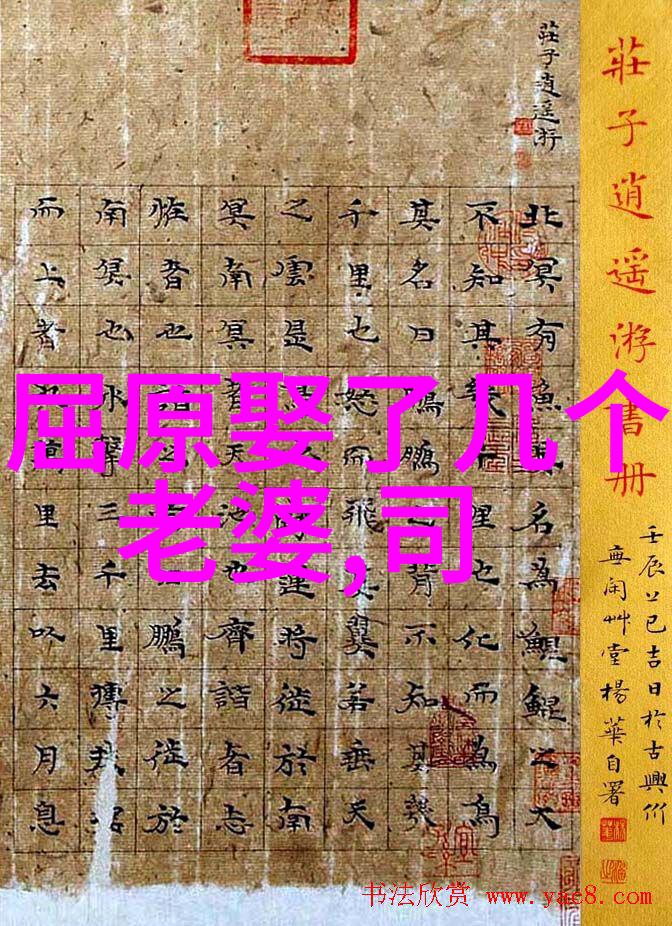 莊子逍遙游書册
壬辰上巳吉日於古興竹
無閑艸堂楊華自署
莊子逍遙游
北冥有魚其名為鯤鯤之大
不知其幾千里也化而為鳥
其名曰鵬鵬之背不知其幾
千里也怒而飛其翼若垂天
之雲是鳥也海運將徙於南
冥南冥者天池也齊諧者志
怪者也諧之言曰鵬之徙於
南冥也水擊三千里摶扶搖
而上者九萬里去以六月息
屈原娶了几个
老婆,司
书法欣赏 www.yac8.com